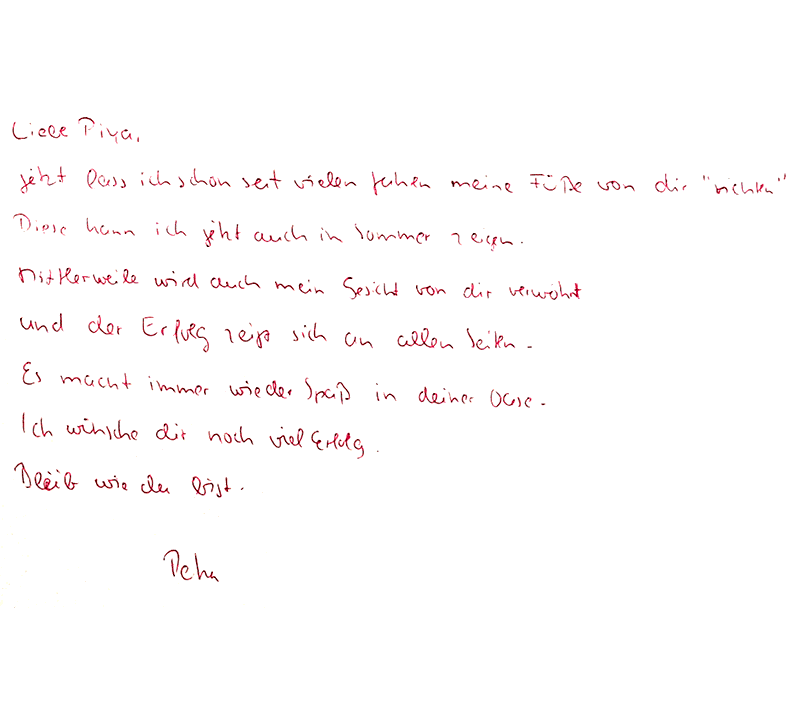 Liebe Piya,
jetzt lass ich schon seit vielen Jahren meine Füße von dir "richten"
Diese kann ich jetzt auch im Sommer zeigen.
Mittlerweile wird auch mein Gesicht von dir verwöhnt
und der Erfolg zeigt sich an allen Seiten.
Es macht immer wieder Spaß in deiner Oase.
Ich wünsche dir noch viel Erfolg.
Bleib wie du bist.
Petra